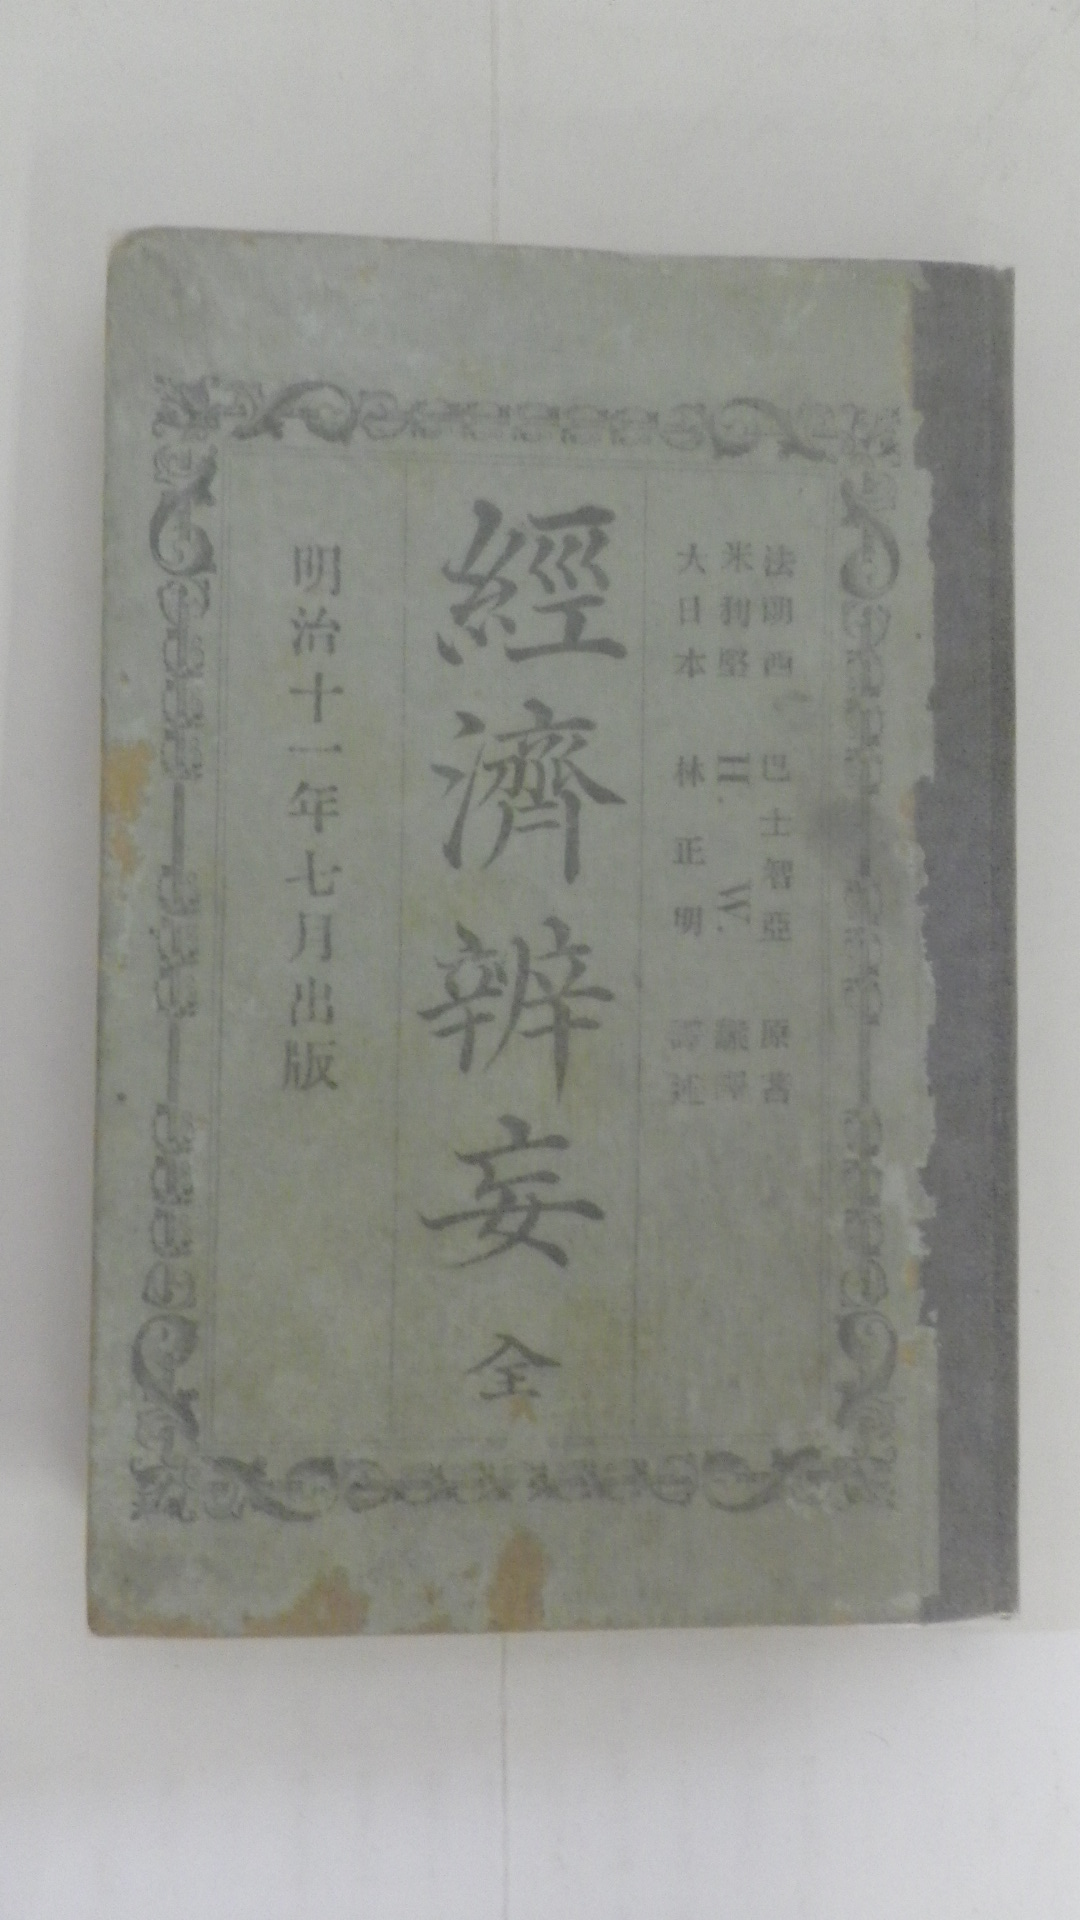 法朗西 巴士智亞 原著
米利堅 H. W. 譯
大日本 林正明 譯述
經濟辨妄 全
明治十一年七月出版